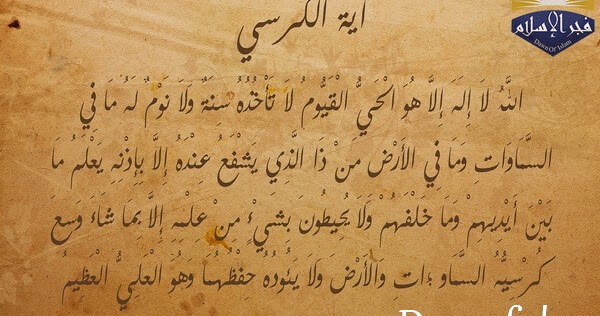 آية الكرسي
فجر الإسلام
Dawn Of Islam
اللَّهُ لَا إِلَهَ إِلَّا هُوَ الْحَيُّ الْقَيُّومُ لَا تَأْخُذُهُ سِنَةٌ وَلَا نَوْمٌ لَهُ مَا فِي
السَّمَاوَاتِ وَمَا فِي الْأَرْضِ مَنْ ذَا الَّذِي يَشْفَعُ عِنْدَهُ إِلَّا بِإِذْنِهِ يَعْلَمُ مَا
بَيْنَ أَيْدِيهِمْ وَمَا خَلْفَهُمْ وَلَا يُحِيطُونَ بِشَيْءٍ مِنْ عِلْمِهِ إِلَّا بِمَا شَاءَ وَسِعَ
كُرْسِيُّهُ السَّمَاو ؛اتِ وَالْأَرْضَ وَلَا يَئُودُهُ حِفْظُهُمَا وَهُوَ الْعَلِيُّ الْعَظِيمُ